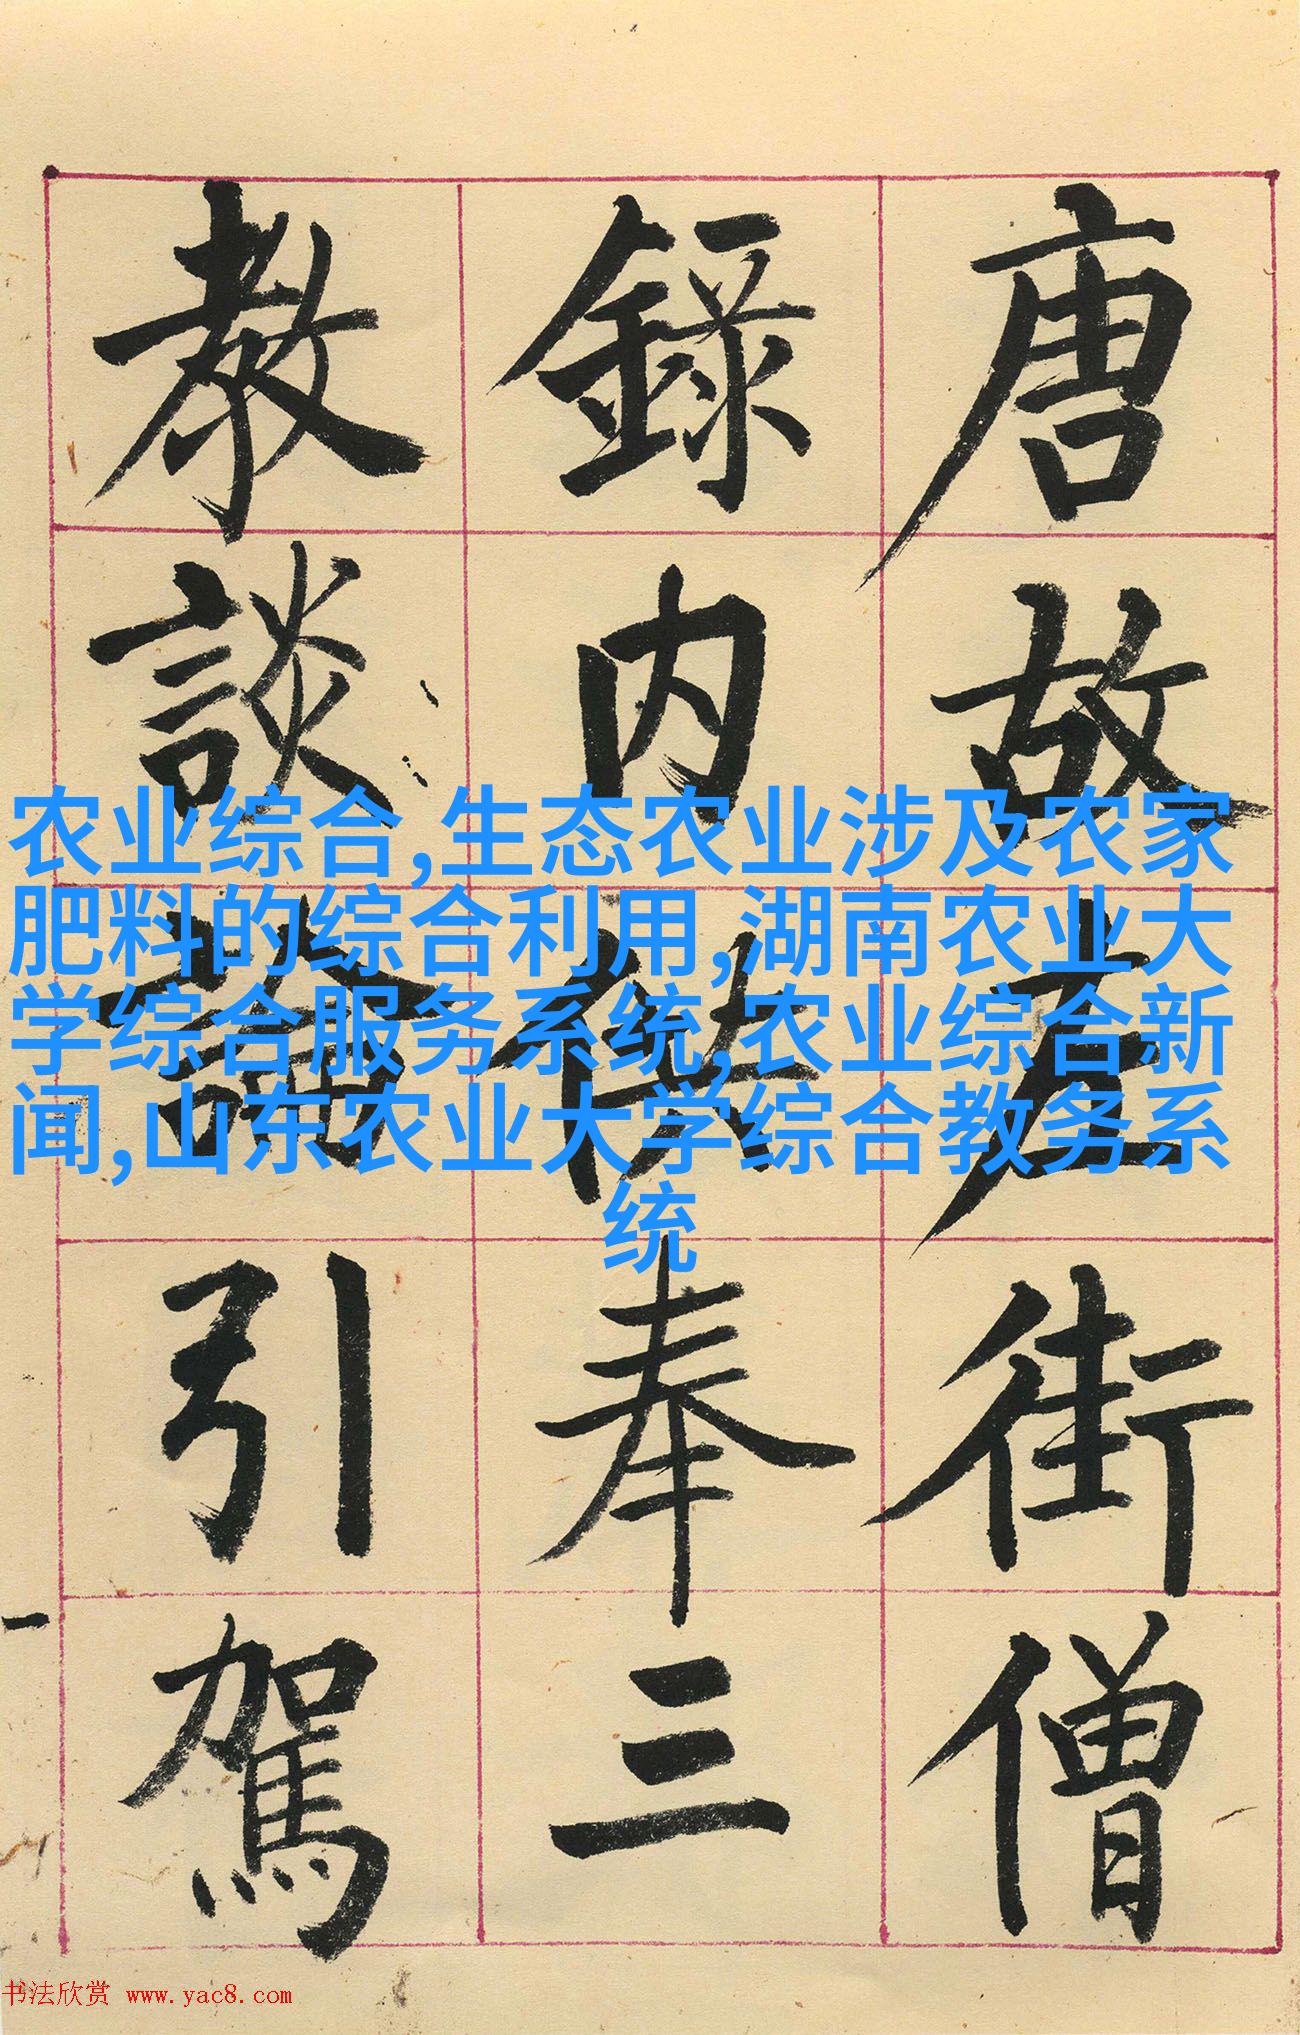 唐故左街僧
錄内供奉三
教談論引駕
农业综合,生态农业涉及农家
肥料的综合利用,湖南农业大
学综合服务系统,农业综合新
闻,山东农业大学综合教务系
统
书法欣赏 www.yac8.com